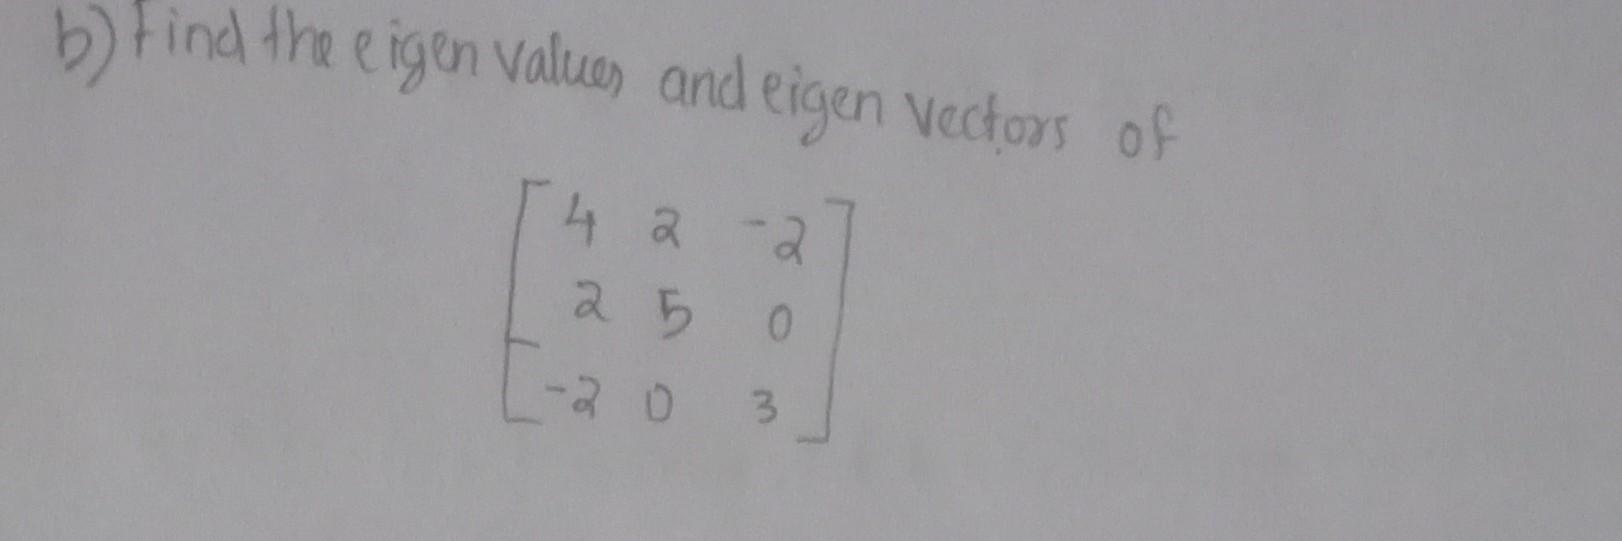 b) Find the eigen values and eigen vectors of
4 2 -2
2 5 0
-2 0 3